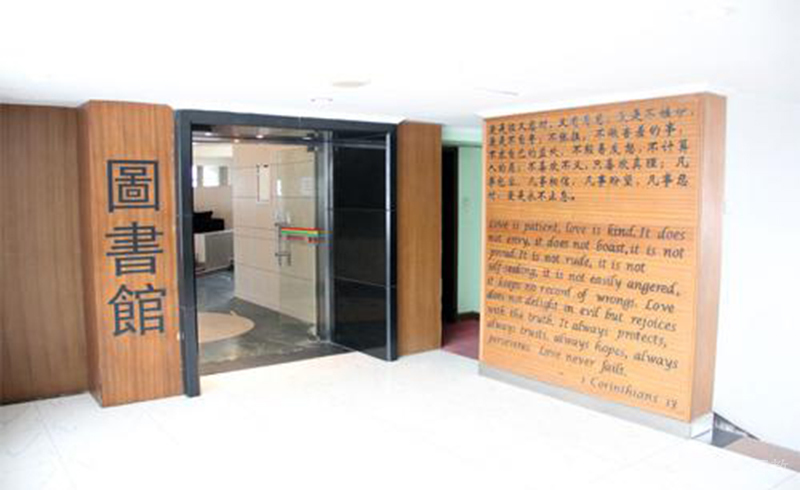 圖書館
爱是恒久忍耐，又有恩慈；爱是不嫉妒，
爱是不自夸，不张狂，不做害羞的事，
不求自己的益处，不轻易发怒，不计算
人的恶，不喜欢不义，只喜欢真理；凡
事包容，凡事相信，凡事盼望，凡事忍
耐，爱是永不止息。
Love is patient, love is kind.It does
not envy, it does not boast,it is not
proud.It is not rude, it is not
self-seeking, it is not easily angered,
it keeps no record of wrongs. Love
does not delight in evil but rejoices
with the truth. It always protects,
always trusts, always hopes, always
perseveres. Love never fails.
1 Corinthians 13